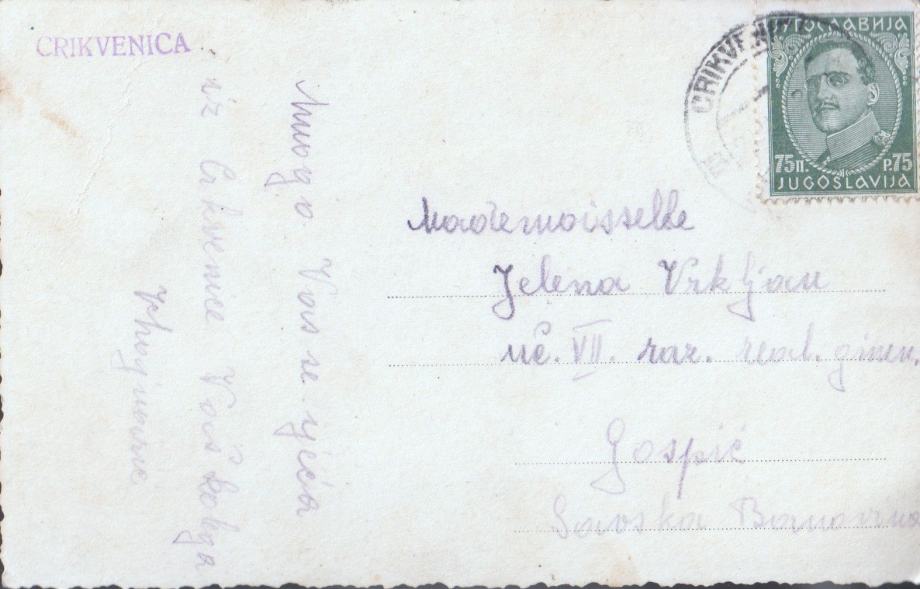 CRIKVENICA
Mnogo Vas se sjeća
iz Crikvenice Vaš kolega
CRIKVENICA
ЈУГОСЛАВИЈА
75П. P.75
JUGOSLAVIJA
Mademoisselle
Jelena Vrkljan
uč. VII. raz. real. gimn.
Gospić
Savska Banovina